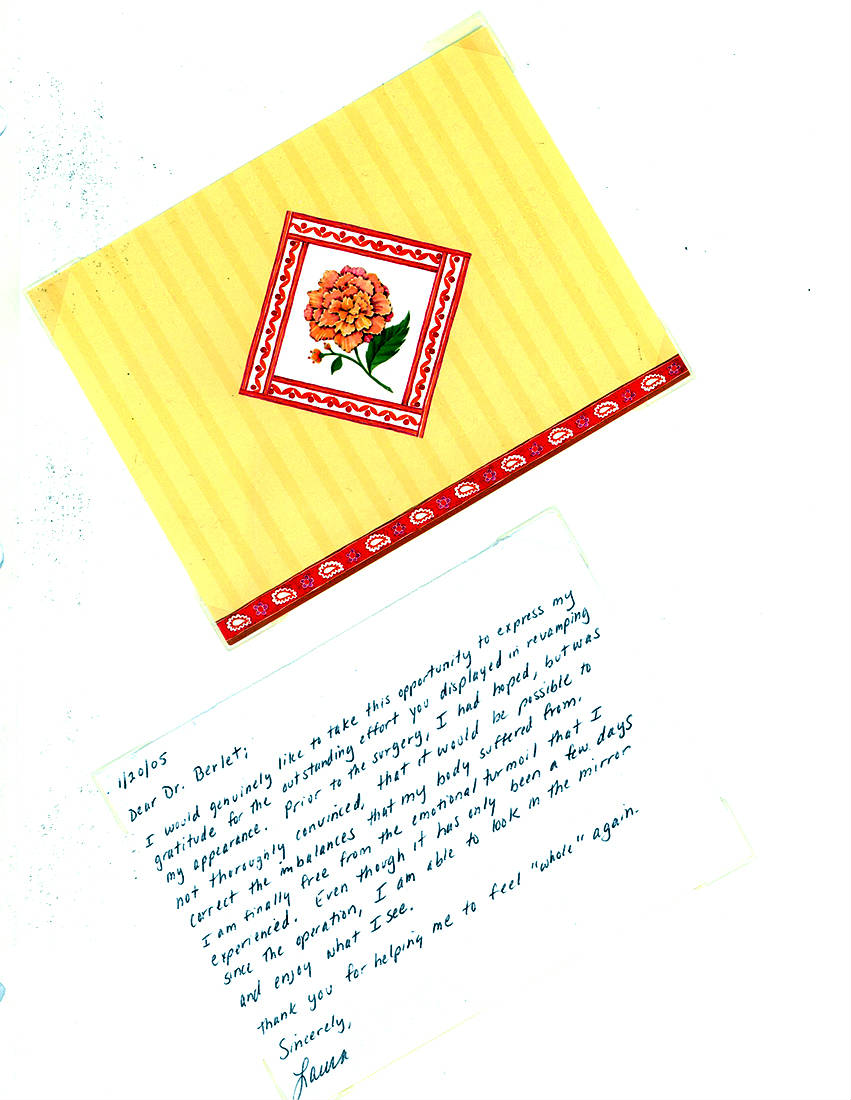 1/20/05
Dear Dr. Berlet;
I would genuinely like to take this opportunity to express my
gratitude for the outstanding effort you displayed in revamping
my appearance. Prior to the surgery, I had hoped, but was
not thoroughly convinced, that it would be possible to
correct the imbalances that my body suffered from.
I am finally free from the emotional turmoil that I
experienced. Even though it has only been a few days
since the operation, I am able to look in the mirror
and enjoy what I see.
Thank you for helping me to feel "whole" again.
Sincerely,
Laura